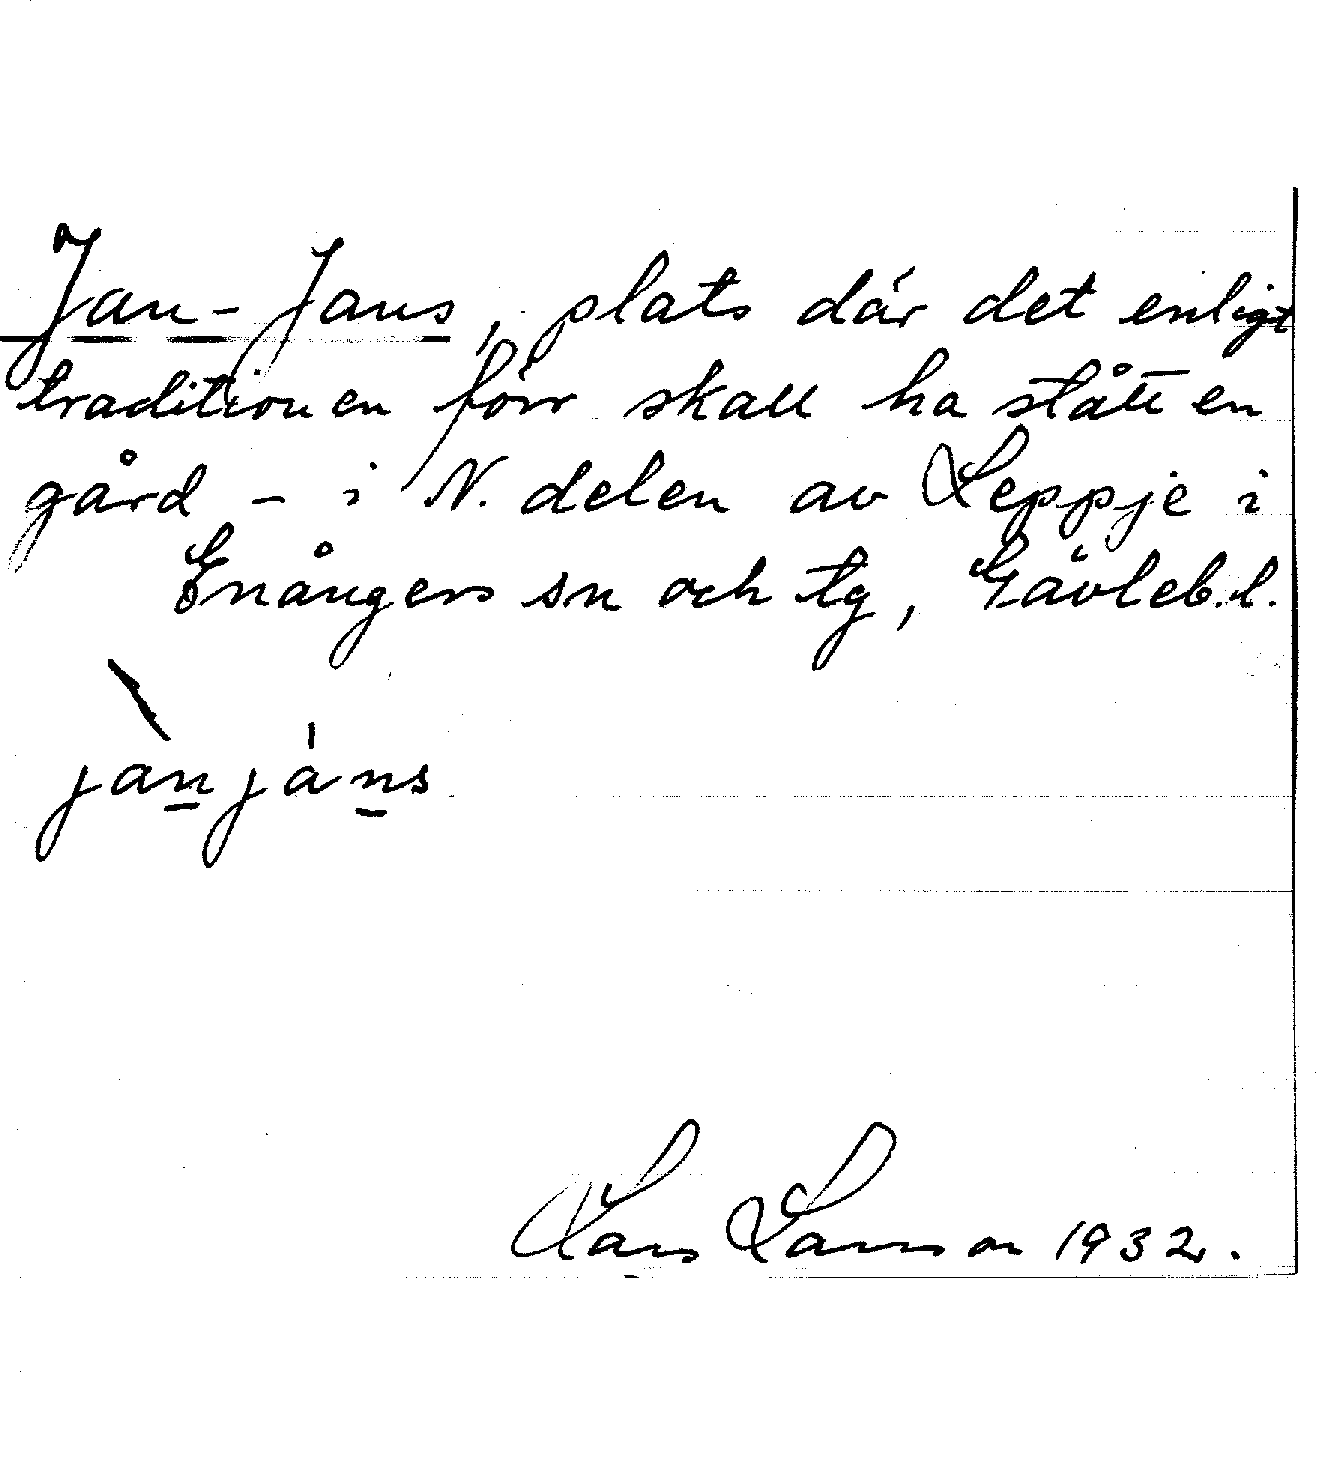 Jan-Jans, plats där det enligt
traditionen förr skall ha stått en
gård – i N. delen av Leppje i
Enångers sn och tg, Gävleb. l.
jànjáns
Lars Larsson 1932.